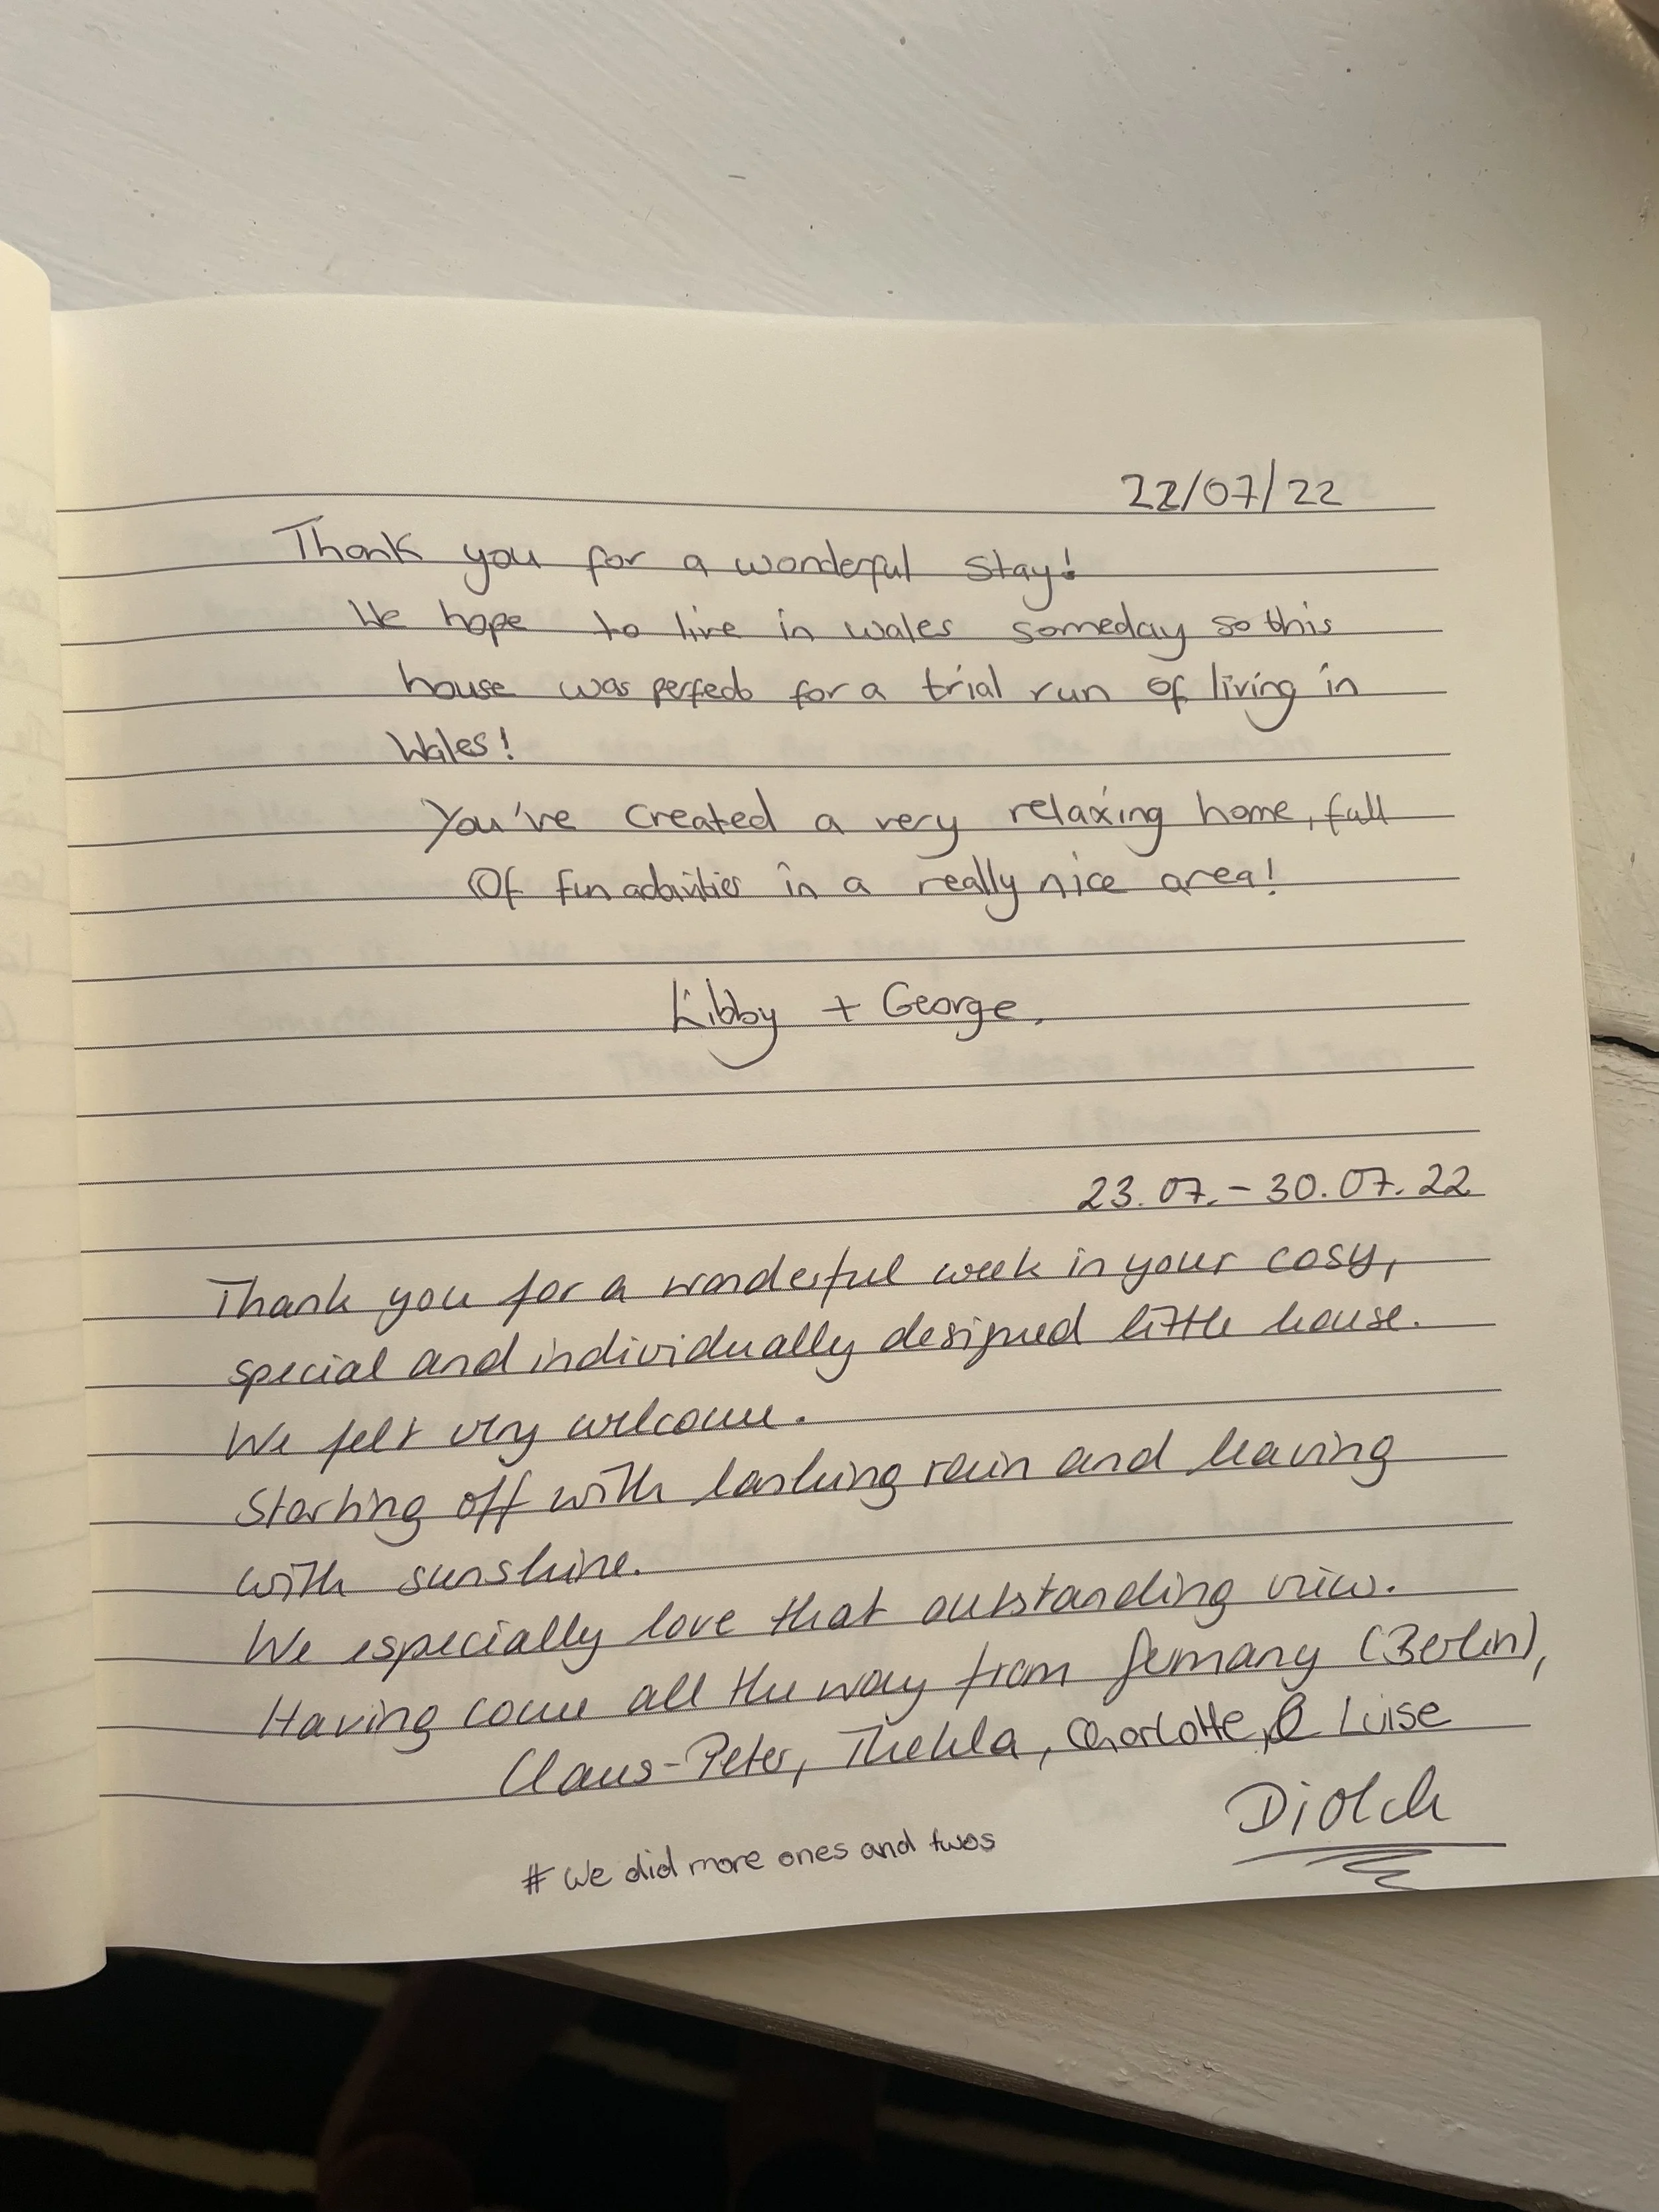 22/07/22
Thank you for a wonderful stay!
We hope to live in wales someday so this
house was perfect for a trial run of living in
Wales!
You've created a very relaxing home, full
Of fun activities in a really nice area!
Libby + George.
23.07. - 30.07.22
Thank you for a wonderful week in your cosy,
special and individually designed little house.
We felt very welcome.
Starting off with lashing rain and leaving
with sunshine.
We especially love that outstanding view.
Having come all the way from Germany (Berlin),
Claus-Peter, Thekla, Charlotte, & Luise
Diolch
# We did more ones and twos